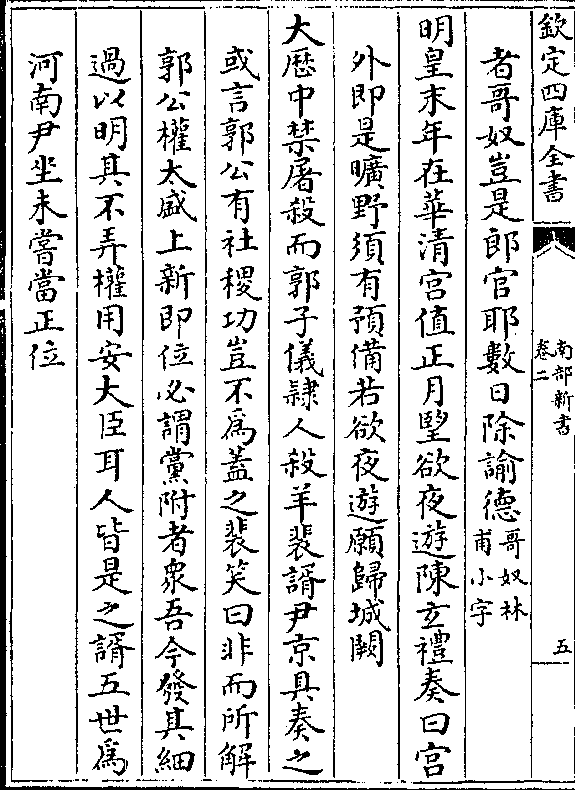 欽定四庫全書
南部新書
卷二
五
者哥奴豈是郎官耶數日除諭德哥奴林甫小字
明皇末年在華清宮值正月朢欲夜遊陳玄禮奏曰宮
外即是曠野須有預備若欲夜遊願歸城闕
大厯中禁屠殺而郭子儀隷人殺羊裴諝尹京具奏之
或言郭公有社稷功豈不爲蓋之裴笑曰非而所解
郭公權太盛上新即位必謂黨附者衆吾今發其細
過以明其不弄權用安大臣耳人皆是之諝五世爲
河南尹坐未嘗當正位